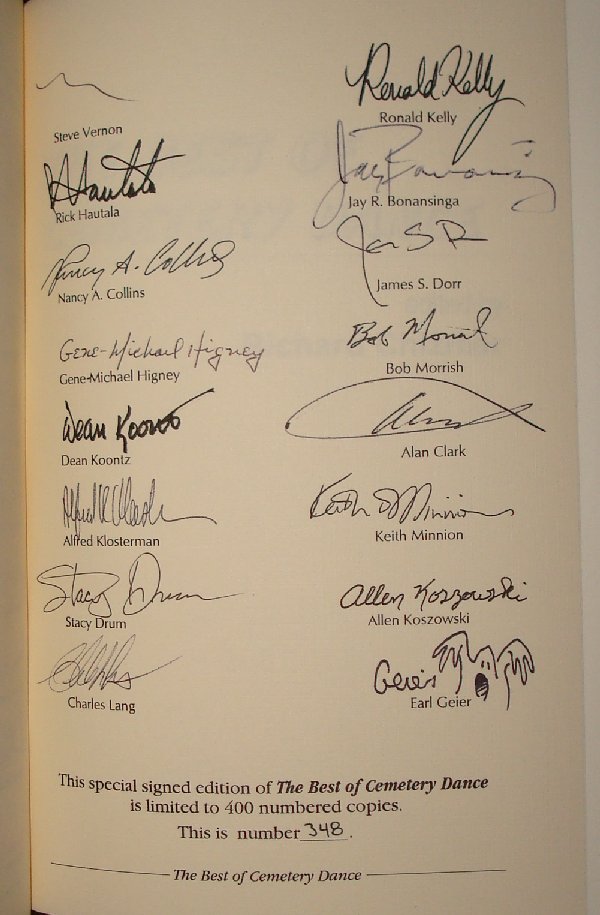 Steve Vernon
Ronald Kelly
Ronald Kelly
R Hautala
Rick Hautala
Jay R. Bonansinga
Nancy A. Collins
Nancy A. Collins
James S. Dorr
Gene-Michael Higney
Gene-Michael Higney
Bob Morrish
Dean Koontz
Dean Koontz
Alan Clark
Alfred Klosterman
Keith Minnion
Keith Minnion
Stacy Drum
Stacy Drum
Allen Koszowski
Allen Koszowski
Charles Lang
Geier
Earl Geier
This special signed edition of The Best of Cemetery Dance
is limited to 400 numbered copies.
This is number 348.
The Best of Cemetery Dance